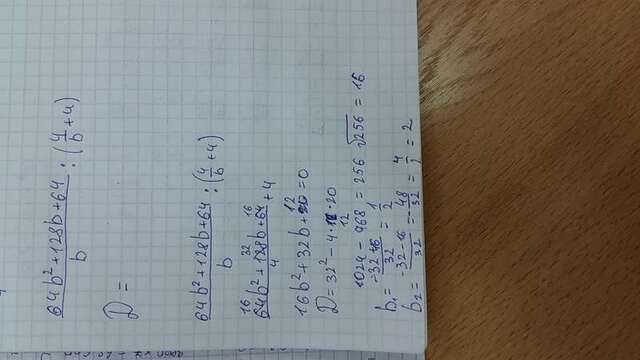 64b² + 128b + 64 / b : (4/b + 4)
D =
64b² + 128b + 64 / b : (4/b + 4)
16 32 16
64b² + 128b + 64 / 4 + 4
16b² + 32b + 12 = 0
D = 32² - 4 · 20
12
1024 - 968 = 256 √256 = 16
b₁ = -32 + 16 / 32 = 1/2
b₂ = -32 - 16 / 32 = -48/32 = 4/2 = 2